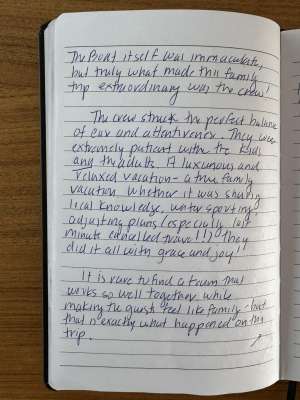 The Boat itself was immaculate,
but truly what made this family
trip extraordinary was the crew!
The crew struck the perfect balance
of fun and attentiveness. They were
extremely patient with the kids
and the adults. A luxurious and
relaxed vacation - a true family
vacation. Whether it was sharing
local knowledge, water sporting,
adjusting plans (especially last
minute cancelled travel!!) they
did it all with grace and joy!
It is rare to find a team that
works so well together while
making the guests feel like family - but
that is exactly what happened on this
trip.